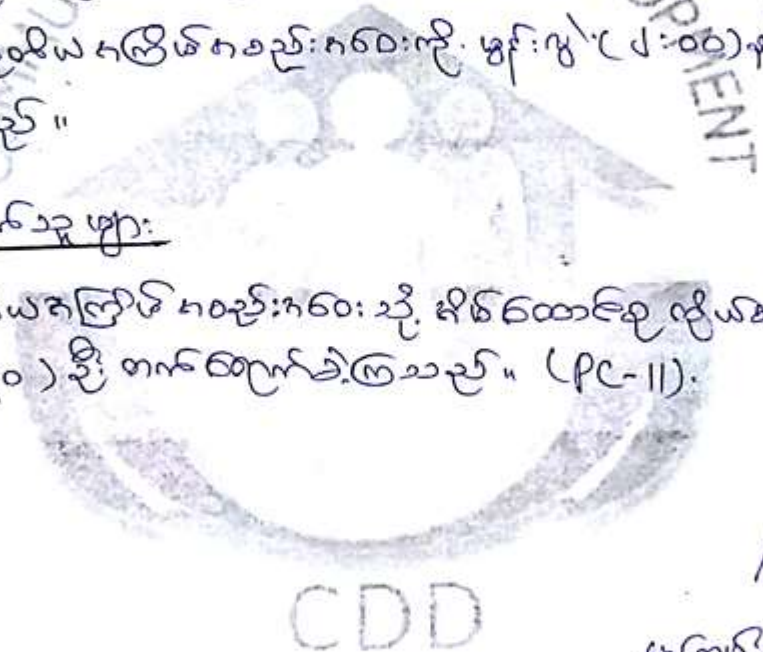 တိယအကြိမ်အစည်းအဝေးကို မွန်းလွဲ (၂:၀၀)
သည်။
က်သူများ
ယအကြိမ် အစည်းအဝေး သို့ အိမ်ထောင်စု ကိုယ်စ
၀) ဦး တက်ရောက်ခဲ့ကြသည်။ (PC-11).
CDD
PMENT